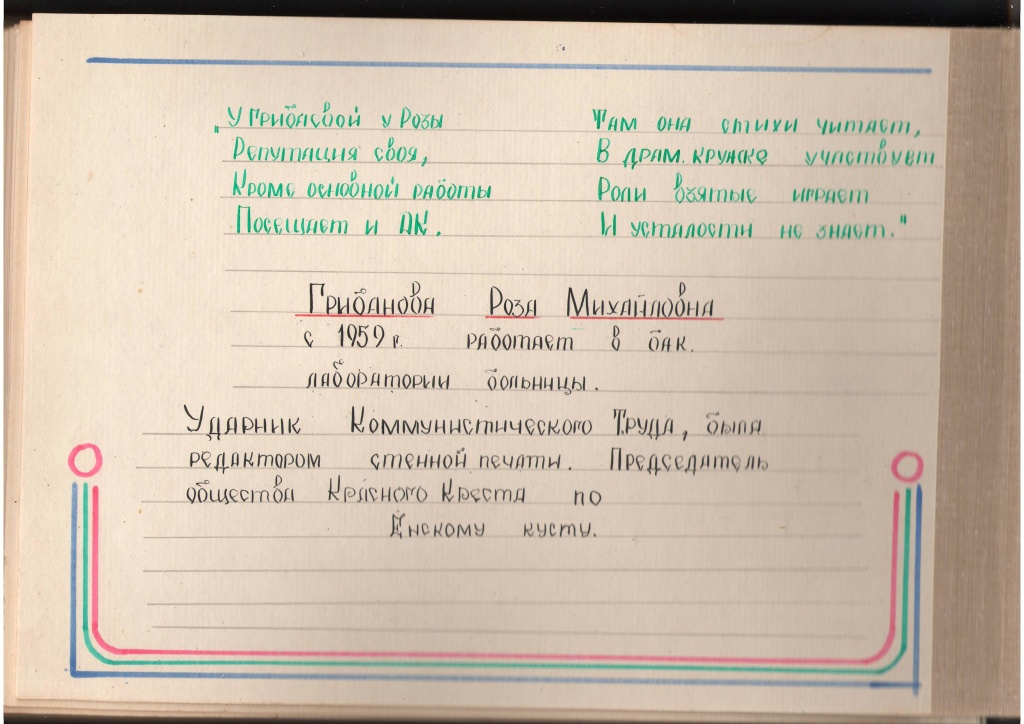 „У Грибаевой у Розы
Репутация своя,
Кроме основной работы
Посещает и ДК.
Там она стихи читает,
В драм. кружке участвует
Роли взятые играет
И усталости не знает."
Грибанова Роза Михайловна
с 1959 г. работает в бак.
лаборатории больницы.
Ударник Коммунистического Труда, была
редактором стенной печати. Председатель
общества Красного Креста по
Ёнскому кусту.